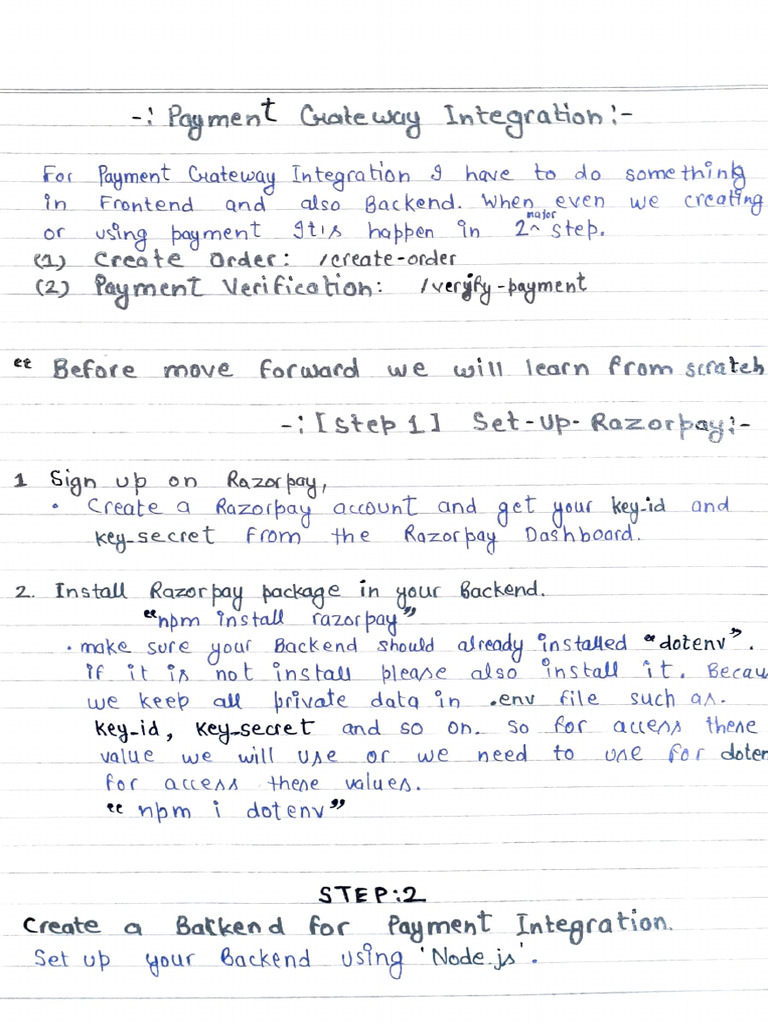 -: Payment Gateway Integration:-
For Payment Gateway Integration I have to do something
in Frontend and also Backend. When even we creating
or using payment It is happen in 2 ^major step.
(1) Create Order: /create-order
(2) Payment Verification: /verify-payment
" Before move forward we will learn from scratch
-: [Step 1] Set-Up-Razorpay:-
1 Sign up on Razorpay,
• Create a Razorpay account and get your key-id and
key-secret from the Razorpay Dashboard.
2. Install Razorpay package in your Backend.
"npm install razorpay"
• make sure your Backend should already installed "dotenv".
if it is not install please also install it. Becau
we keep all private data in .env file such as.
key-id, key-secret and so on. So for access these
value we will use or we need to use for doten
for access these values.
" npm i dotenv"
STEP:2
Create a Backend for Payment Integration.
Set up your Backend using 'Node.js'.